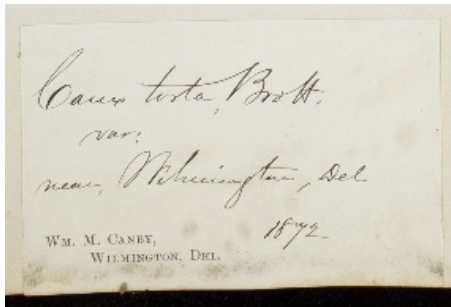 Carex torta, Boott.
var:
near, Wilmington, Del
1872
WM. M. CANBY,
WILMINGTON, DEL.